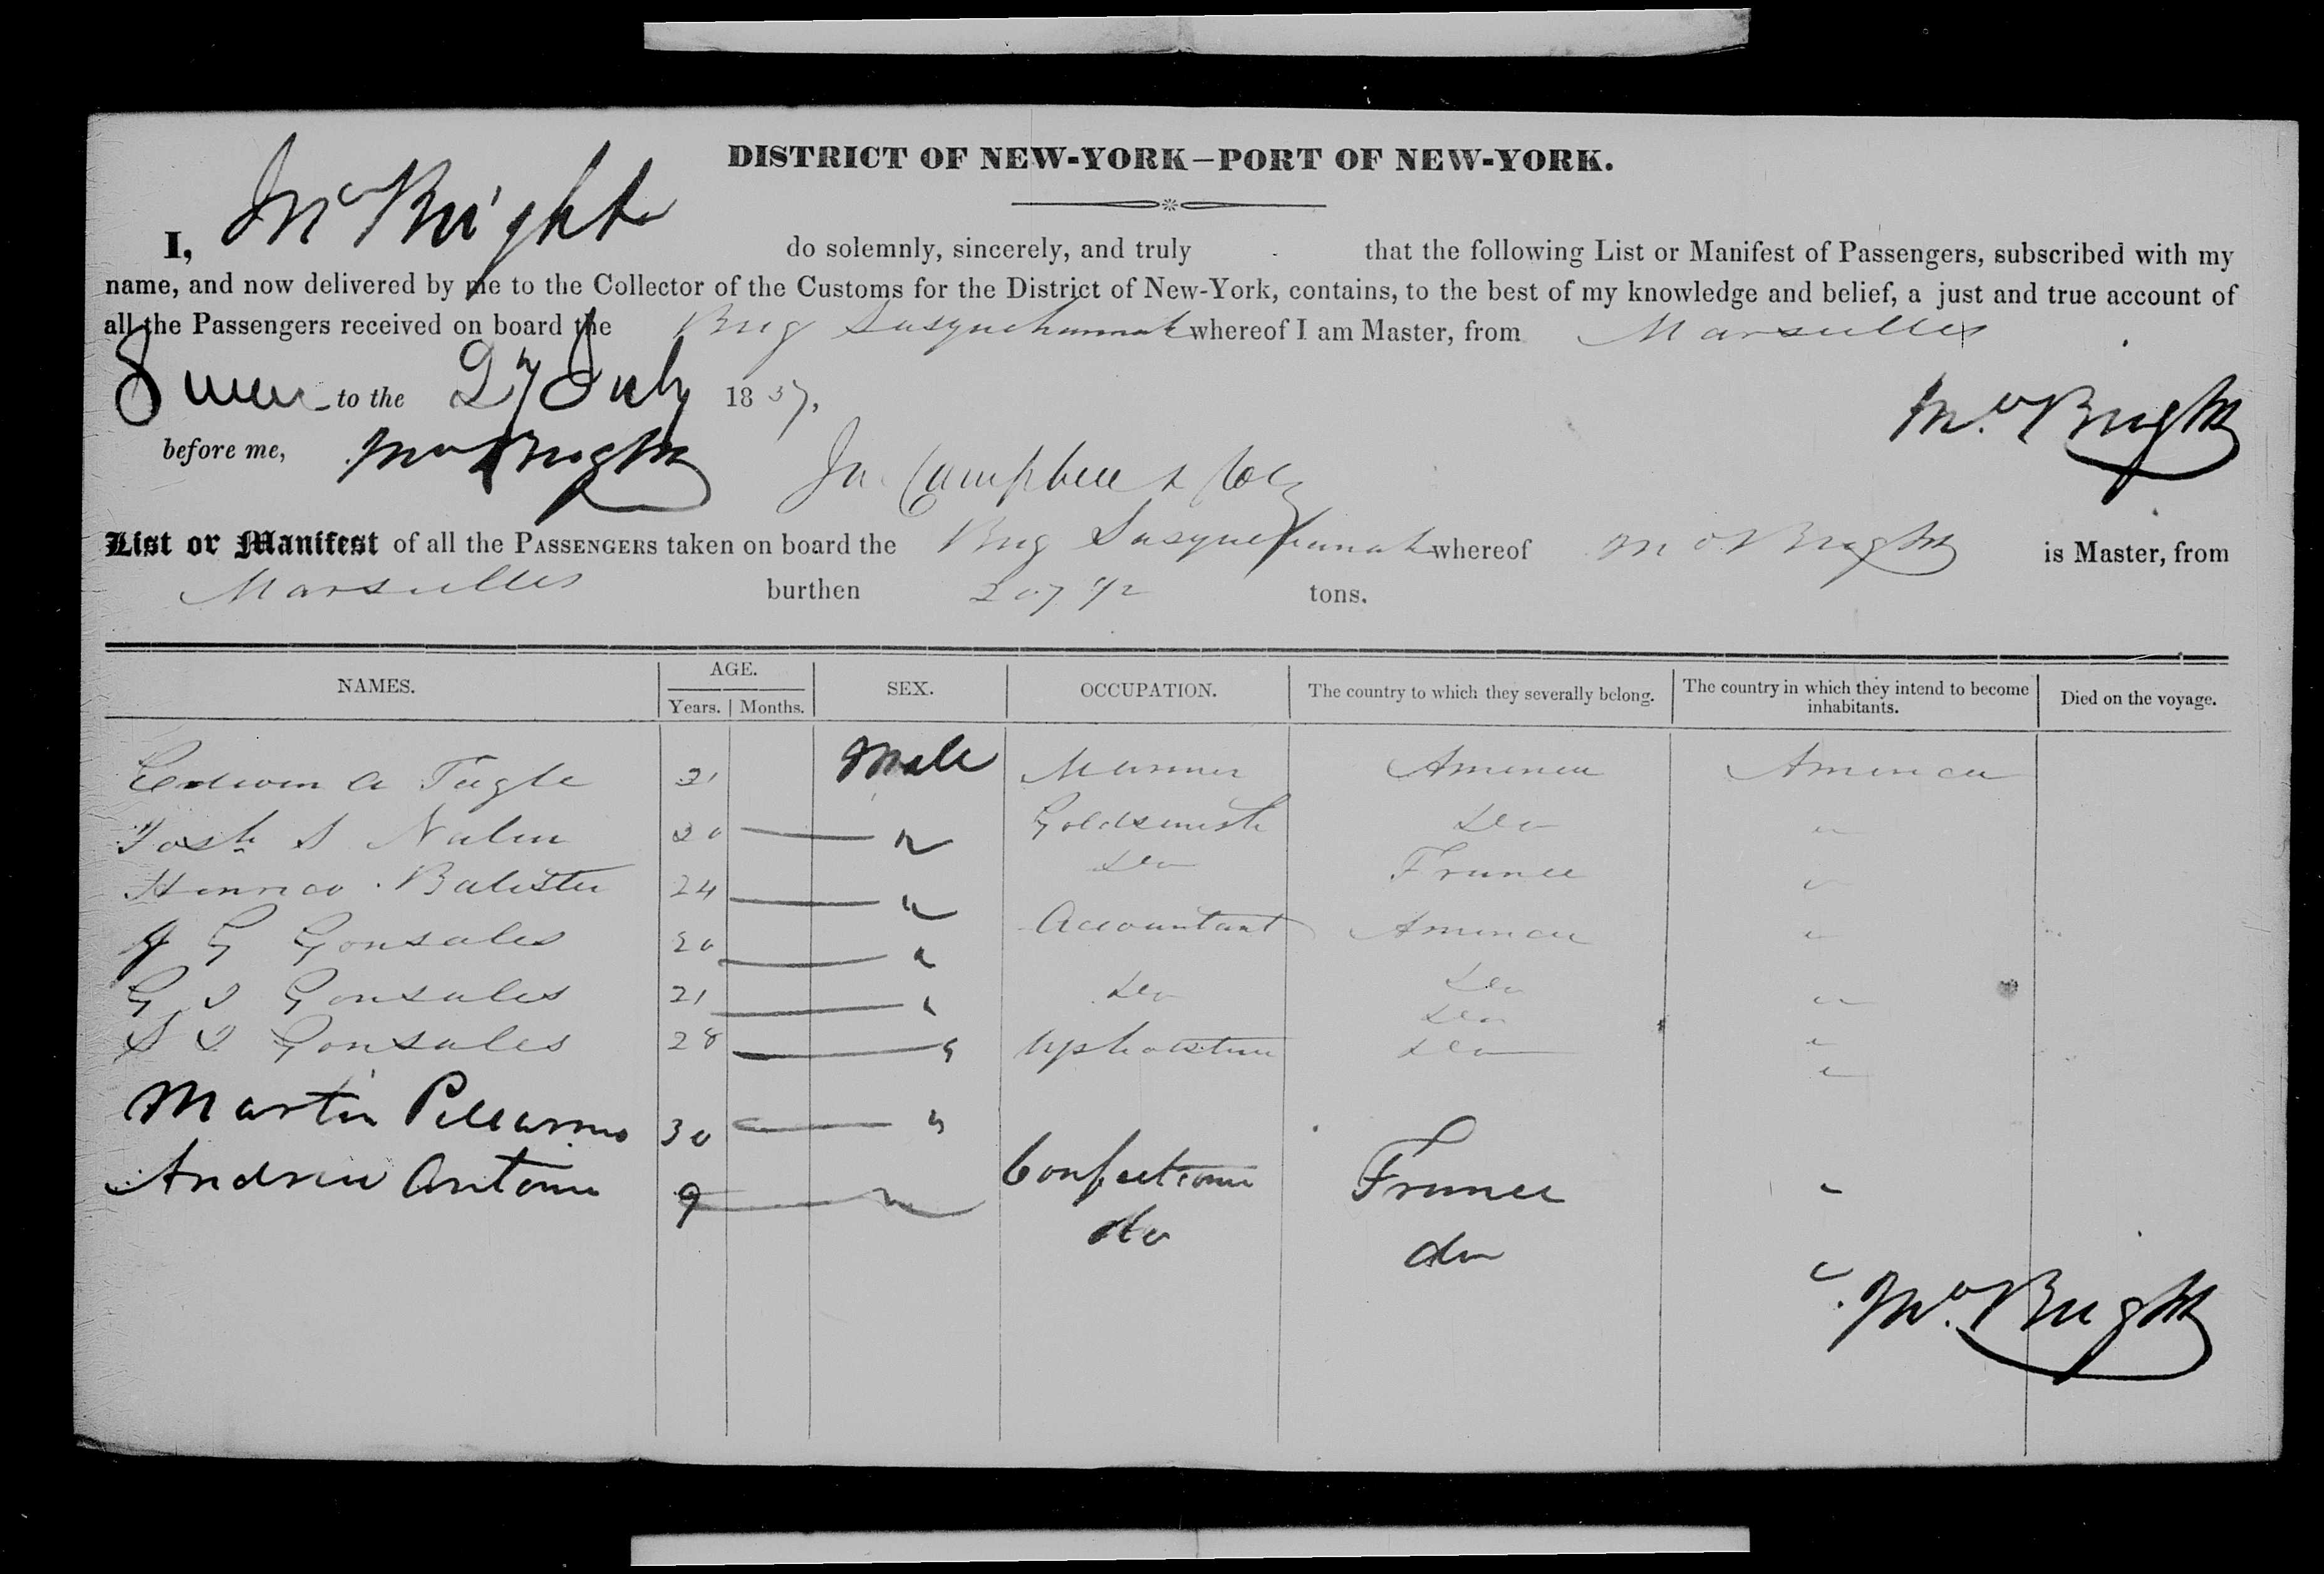 DISTRICT OF NEW-YORK–PORT OF NEW-YORK.
I, Mc Bright do solemnly, sincerely, and truly that the following List or Manifest of Passengers, subscribed with my
name, and now delivered by me to the Collector of the Customs for the District of New-York, contains, to the best of my knowledge and belief, a just and true account of
all the Passengers received on board the Brig Susquehannah whereof I am Master, from Marseilles
to the 27 July 1837.
before me, Mc Bright
Campbell &
Mc Bright
List or Manifest of all the PASSENGERS taken on board the Brig Susquehannah whereof Mc Bright is Master, from
Marseilles burthen 207 tons.
NAMES. AGE. Years. Months. SEX. OCCUPATION. The country to which they severally belong. The country in which they intend to become inhabitants. Died on the voyage.
Edwin A Tugle 21 Male Mariner America America
Josh S 20 " Goldsmith Do "
Balister 24 " Do France "
J G Gonsales 20 " Accountant America "
G I Gonsales 21 " Do Do "
S I Gonsales 28 " Upholsterer Do "
Do "
Martin 30 " Confectioner France "
Andrew Antoni 9 " do do "
Mc Bright